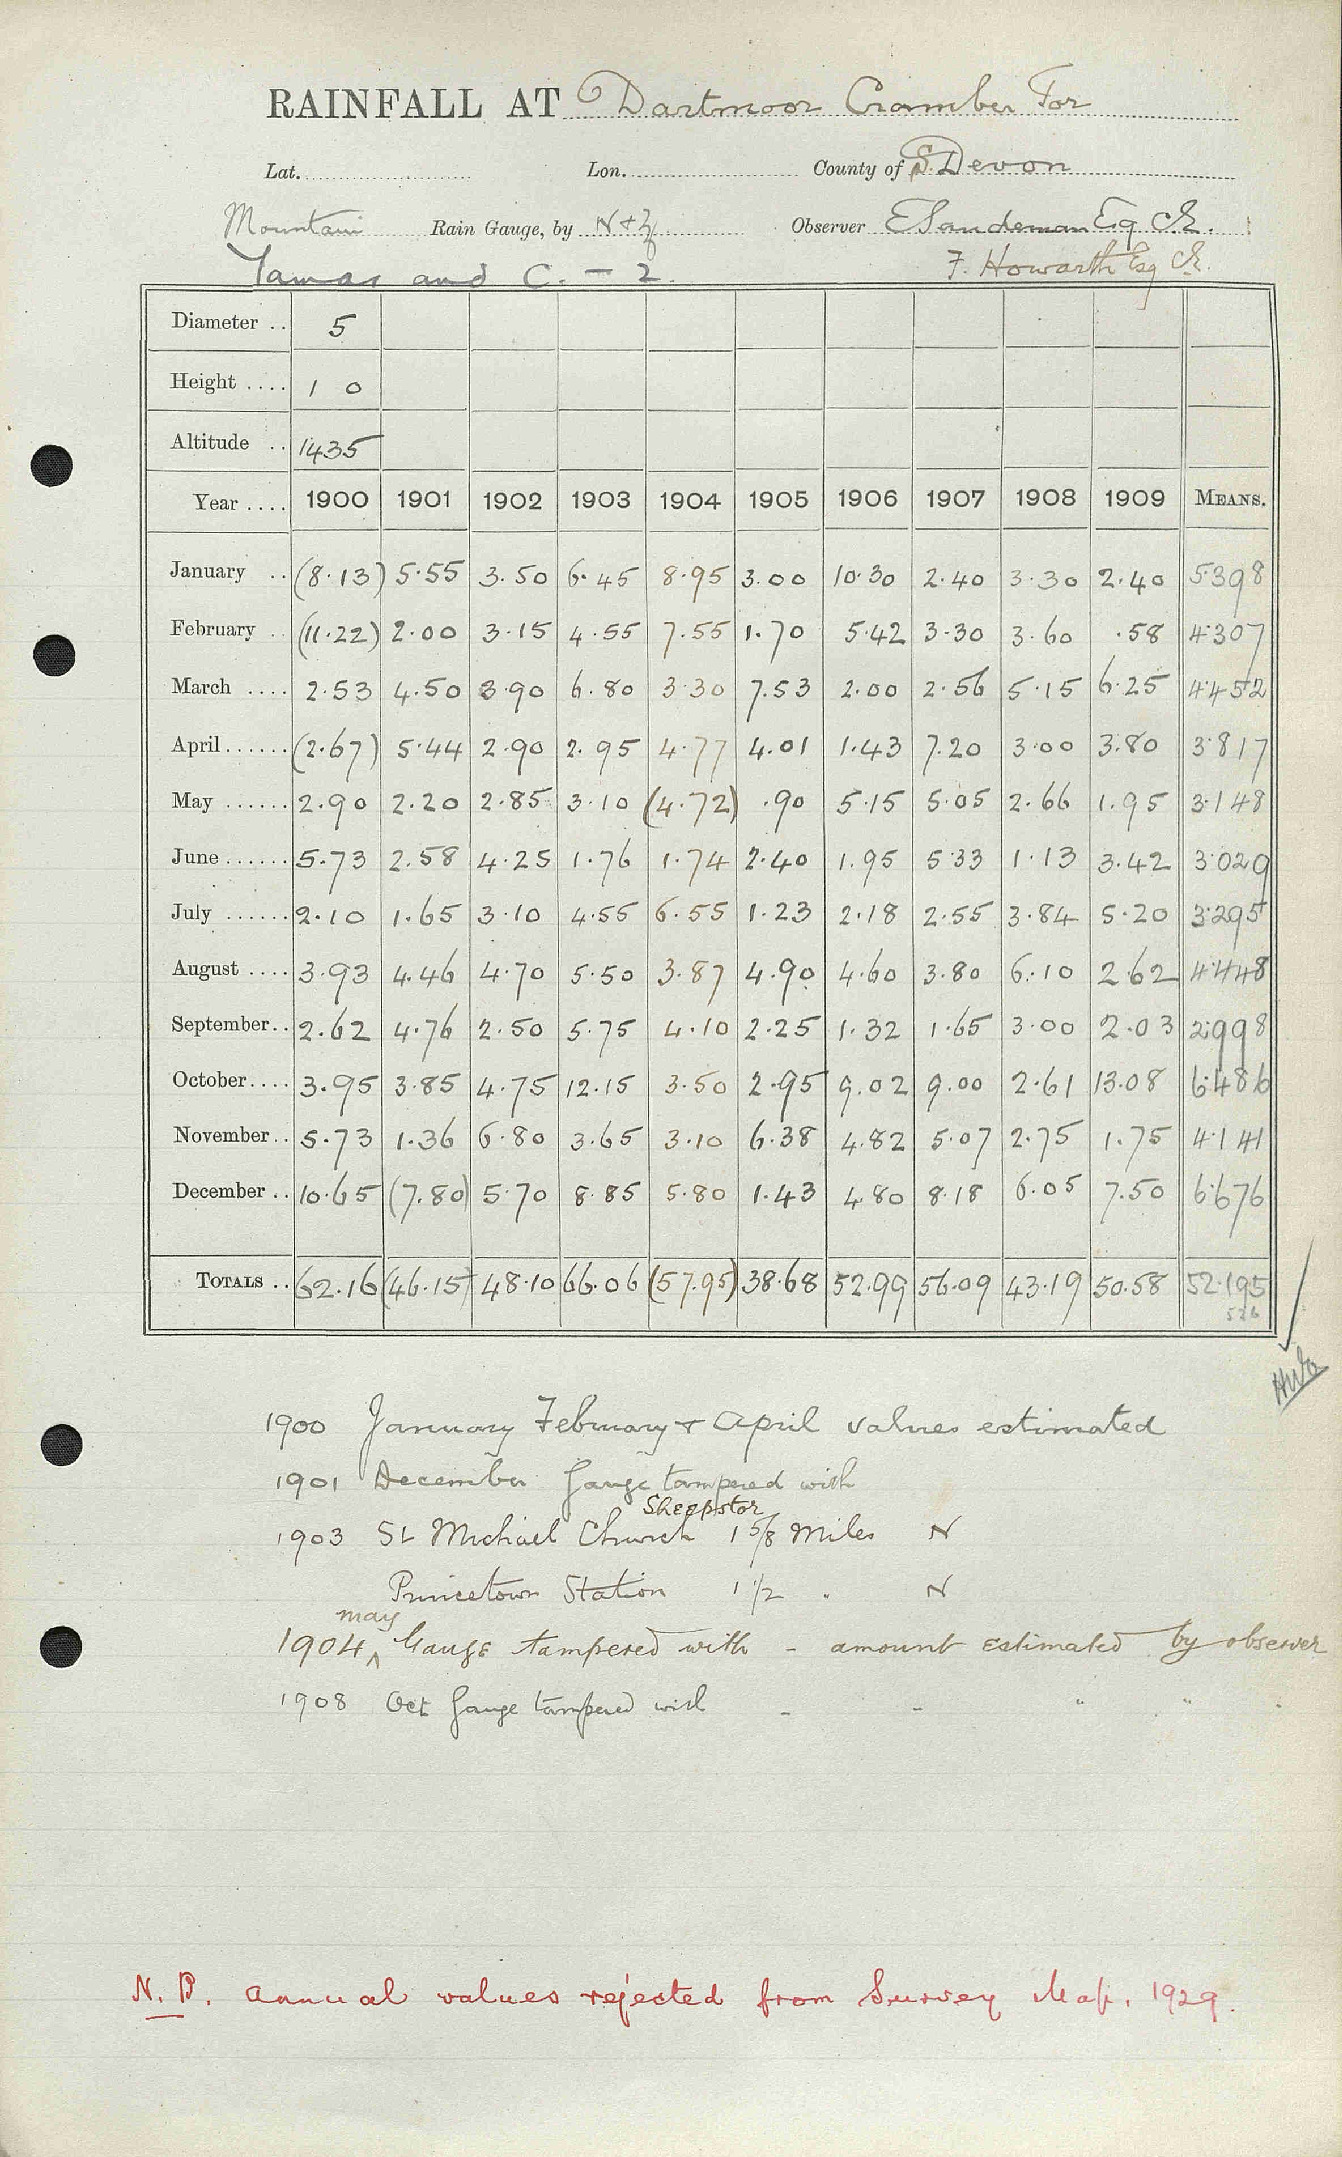 RAINFALL AT Dartmoor Cramber Tor
Lat. Lon. County of S. Devon
Mountain Rain Gauge, by N+Z Observer E Sandeman Esq CE.
and C. - 2 F. Howarth Esq CE.
Diameter .. 5
Height .... 1 0
Altitude .. 1435
Year .... 1900 1901 1902 1903 1904 1905 1906 1907 1908 1909 MEANS.
January .. (8.13) 5.55 3.50 6.45 8.95 3.00 10.30 2.40 3.30 2.40 5.398
February .. (11.22) 2.00 3.15 4.55 7.55 1.70 5.42 3.30 3.60 .58 4.307
March .... 2.53 4.50 3.90 6.80 3.30 7.53 2.00 2.56 5.15 6.25 4.452
April ...... (2.67) 5.44 2.90 2.95 4.77 4.01 1.43 7.20 3.00 3.80 3.817
May ...... 2.90 2.20 2.85 3.10 (4.72) .90 5.15 5.05 2.66 1.95 3.148
June ...... 5.73 2.58 4.25 1.76 1.74 2.40 1.95 5.33 1.13 3.42 3.029
July ...... 2.10 1.65 3.10 4.55 6.55 1.23 2.18 2.55 3.84 5.20 3.295
August .... 3.93 4.46 4.70 5.50 3.87 4.90 4.60 3.80 6.10 2.62 4.448
September .. 2.62 4.76 2.50 5.75 4.10 2.25 1.32 1.65 3.00 2.03 2.998
October .... 3.95 3.85 4.75 12.15 3.50 2.95 9.02 9.00 2.61 13.08 6.486
November .. 5.73 1.36 6.80 3.65 3.10 6.38 4.82 5.07 2.75 1.75 4.141
December .. 10.65 (7.80) 5.70 8.85 5.80 1.43 4.80 8.18 6.05 7.50 6.676
TOTALS .. 62.16 (46.15) 48.10 66.06 (57.95) 38.68 52.99 56.09 43.19 50.58 52.195
526
1900 January February & April values estimated
1901 December Gauge tampered with
Sheepstor
1903 St Michael Church 1 5/8 Miles N
Princetown Station 1 1/2 " N
may
1904 ^ Gauge tampered with - amount estimated by observer
1908 Oct Gauge tampered with - - " " "
N.B. Annual values rejected from Survey Map. 1929.